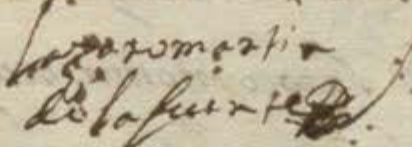 lazaro martin
de la fuente